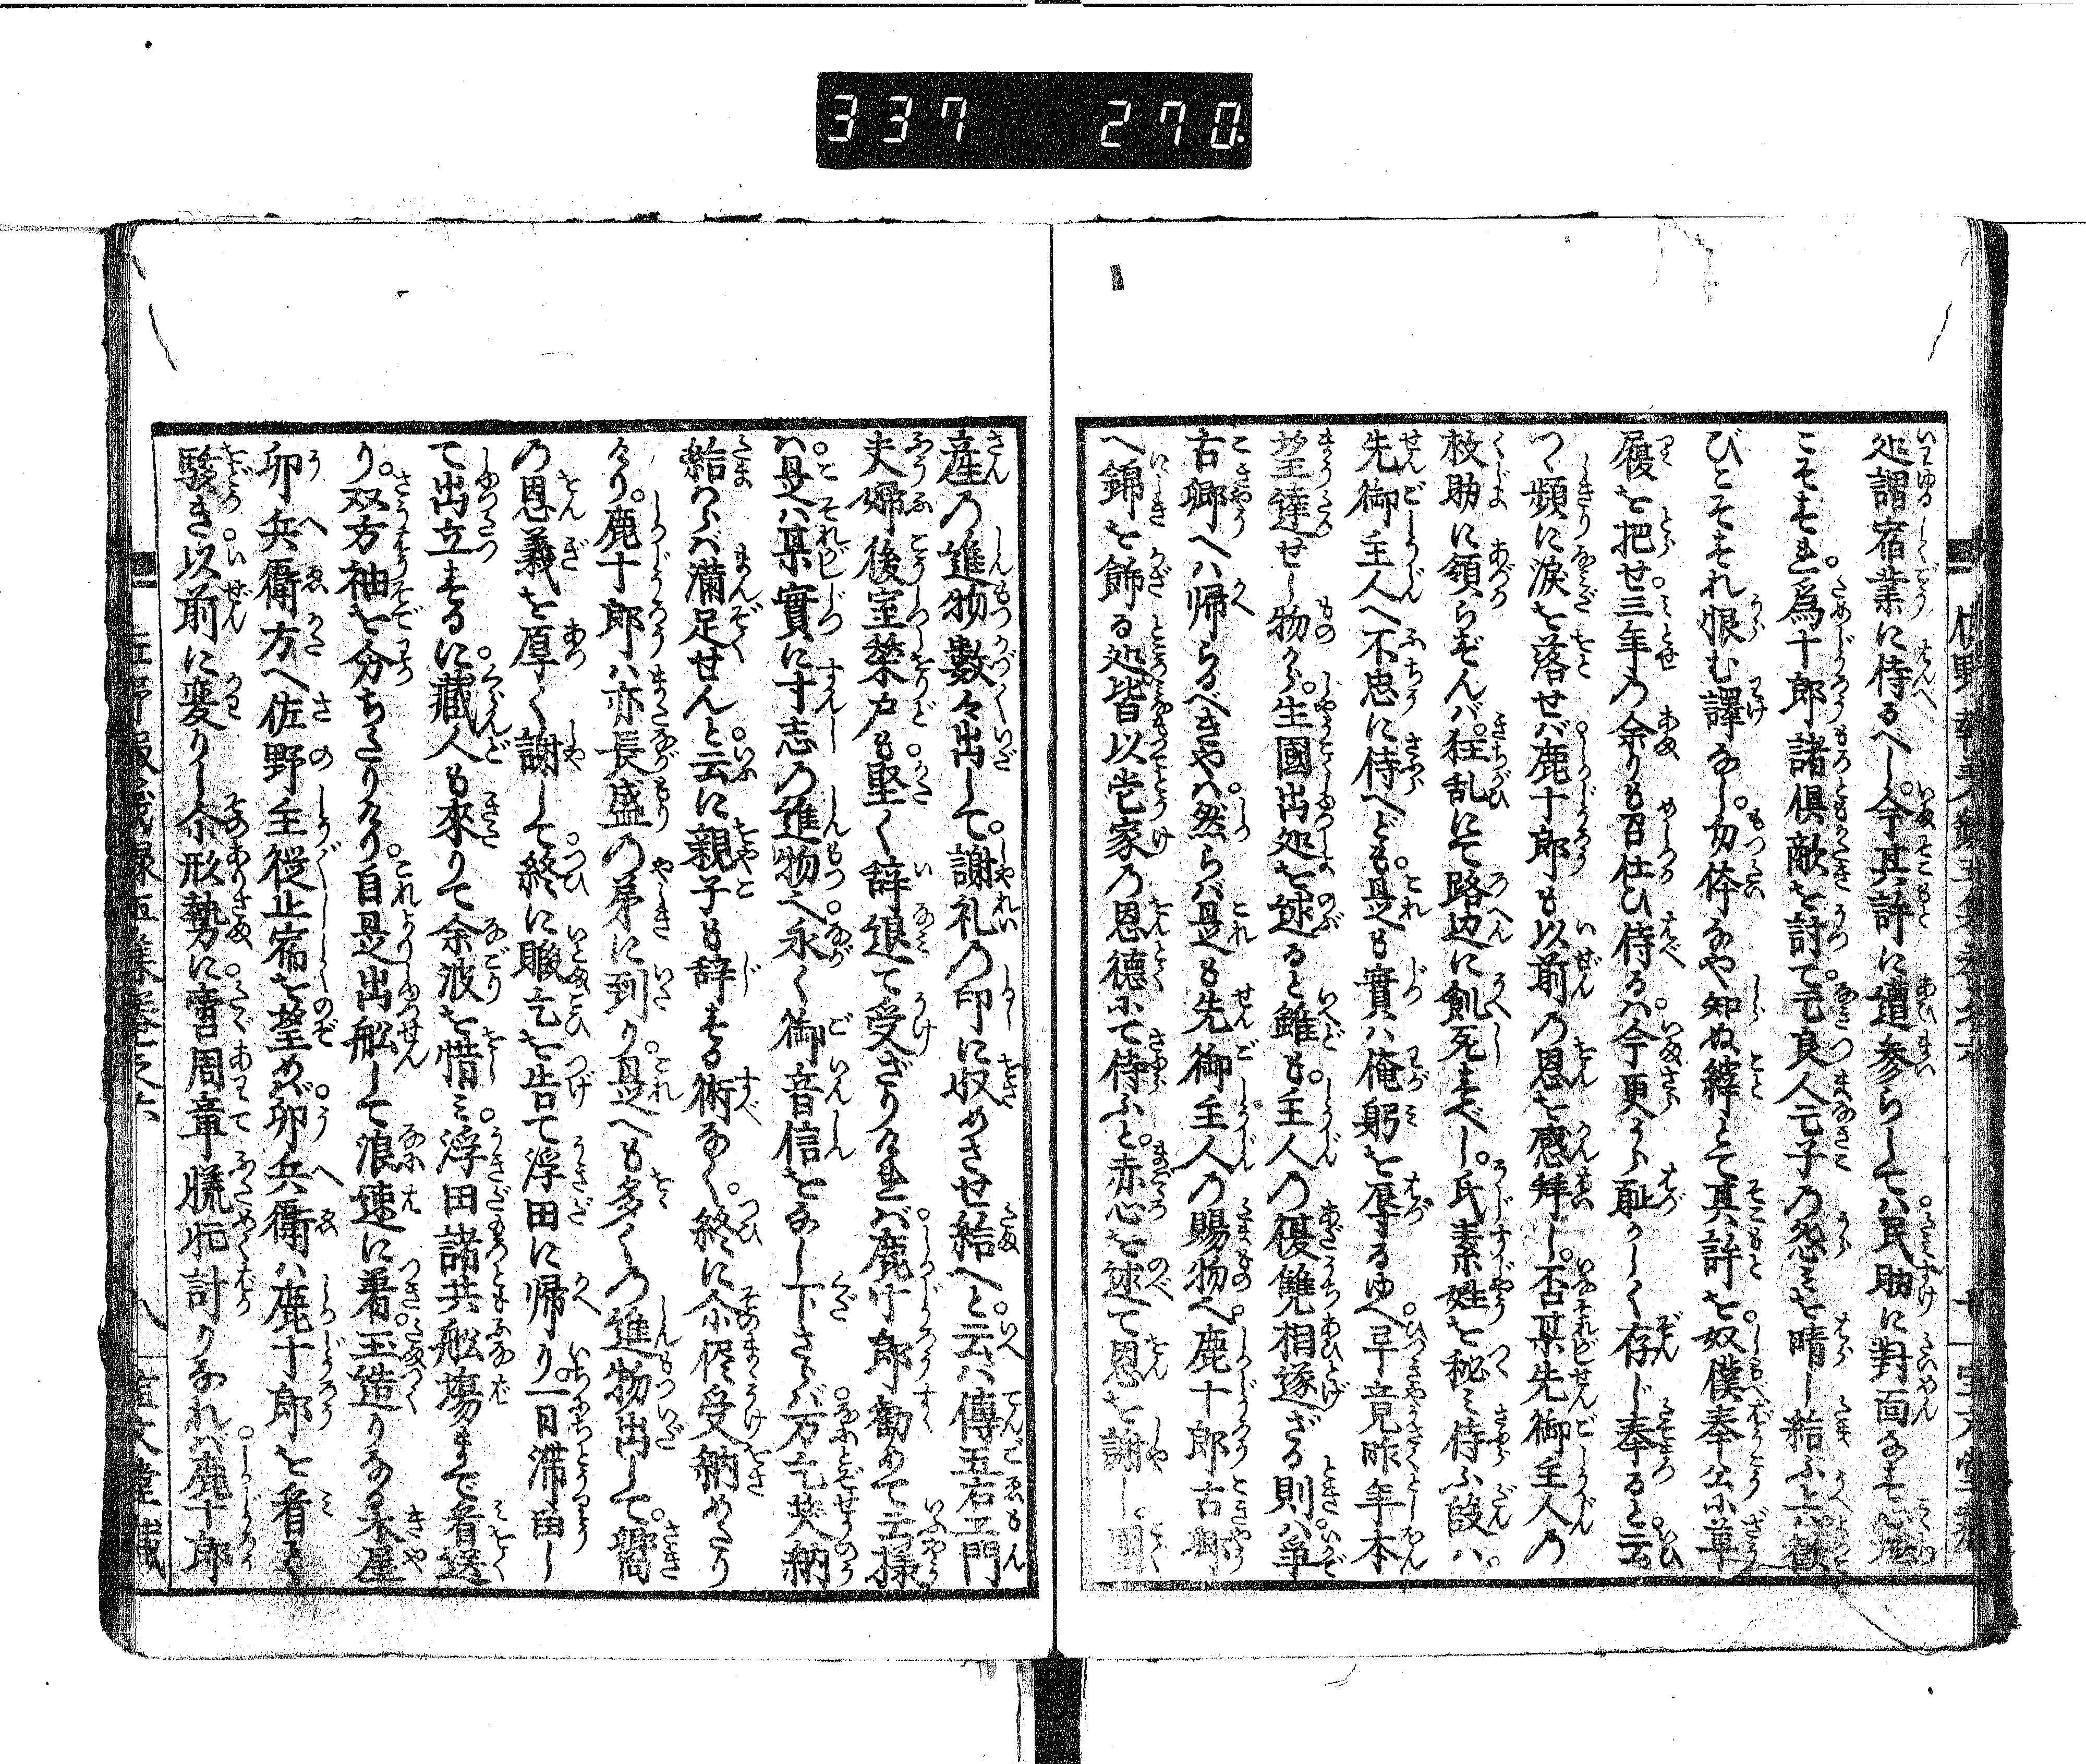 337 270
処謂宿業に侍るべし。今其許に遭参らしては民助に對面なす心地
こそすれ。爲十郎諸倶敵を討て。亡良人亡子の怨ミを晴し給ふ上ハ歓
びこそすれ恨む譯なし。勿体なや知ぬ縡とて其許を。奴僕奉公ぶ草
履を把せ。三年の余りも召仕ひ侍るハ。今更うら恥かしく存じ奉ると云
つゝ頻に涙を落せバ。鹿十郎も以前の恩を感拜し。否某先御主人の
救助に領らずんバ。狂乱にて路辺に飢死すべし。氏素姓を秘ミ侍ふ段ハ。
先御主人へ不忠に侍へども。是も實ハ俺躬を辱るゆへ。早竟昨年本
望達せし物から。生國出処を述ると雖も。主人の復讐相遂ざる則ハ。爭
古郷へハ帰らるべきやハ。然らバ是も先御主人の賜物へ。鹿十郎古郷
へ錦を飾る処皆以壱家の恩徳ニて侍ふと。赤心を述て恩を謝し。國
産の進物數々出して。謝礼の印に収めさせ給へと云バ。傳五右エ門
夫婦後室榮戸も。堅く辞退て受ざりけれバ。鹿十郎勸めて云様
ハ。是ハ某實に寸志の進物へ。永く御音信をなし下さらバ。万乞笑納
給ハらバ滿足せんと。云に親子も辞する術なく。終に尓侭受納めたり
けり。鹿十郎ハ亦長盛の弟に到り。是へも多くの進物出して。嚮
の恩義を厚く謝して。終に暇乞を告て浮田に帰り。一日滞留し
て出立するに。蔵人も來りて余波を惜ミ。浮田諸共舩場まで看送
り。双方袖を分ちたりけり。自是出舩して浪速に着。玉造りなる木屋
卯兵衛方へ佐野主従止宿を望めバ。卯兵衛ハ鹿十郎を看て
駭き。以前に変りし尓形勢に。啻周章騰怔計りなれバ。鹿十郎